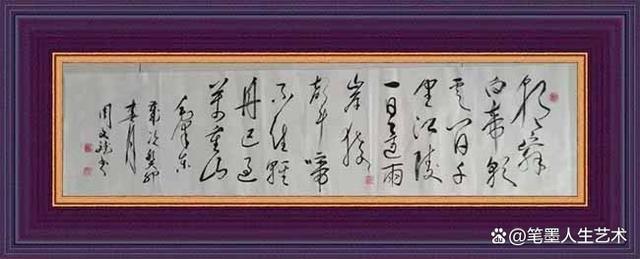 朝辞
白帝彩
云间千
里江陵
一日还两
岸猿
声啼
不住轻
舟已过
万重山
毛泽东
岁次癸卯
春月
周文书
@笔墨人生艺术